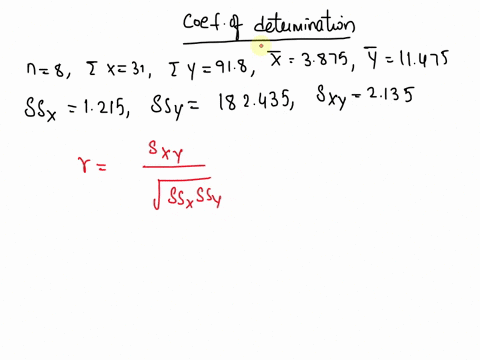 Coef. of determination
n=8, Σ x=31, Σ y=91.8, X̄ = 3.875, Ȳ = 11.475
SSx = 1.215, SSy = 182.435, Sxy = 2.135
r = Sxy / √SSx SSy